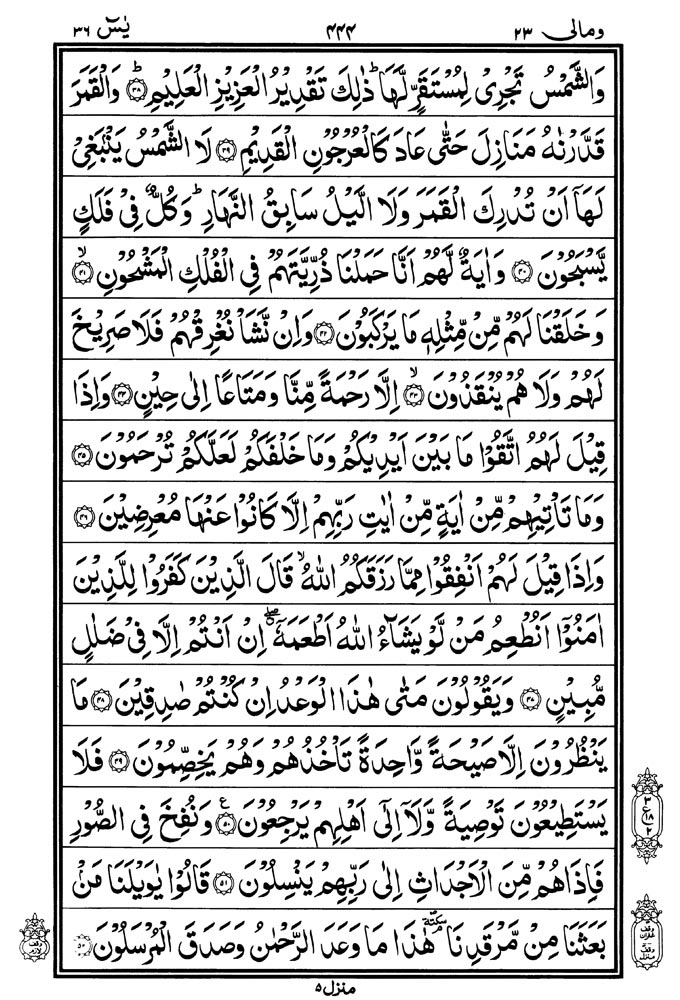 ومالی ٢٣ ٤٤٤ يٰسٓ ٣٦
وَالشَّمْسُ تَجْرِیْ لِمُسْتَقَرٍّ لَّهَا ؕ ذٰلِكَ تَقْدِیْرُ الْعَزِیْزِ الْعَلِیْمِ ؕ ﴿۳۸﴾ وَالْقَمَرَ
قَدَّرْنٰهُ مَنَازِلَ حَتّٰی عَادَ كَالْعُرْجُوْنِ الْقَدِیْمِ ﴿۳۹﴾ لَا الشَّمْسُ یَنْۢبَغِیْ
لَهَاۤ اَنْ تُدْرِكَ الْقَمَرَ وَلَا الَّیْلُ سَابِقُ النَّهَارِ ؕ وَكُلٌّ فِیْ فَلَكٍ
یَّسْبَحُوْنَ ﴿۴۰﴾ وَاٰیَةٌ لَّهُمْ اَنَّا حَمَلْنَا ذُرِّیَّتَهُمْ فِی الْفُلْكِ الْمَشْحُوْنِ ۙ ﴿۴۱﴾
وَخَلَقْنَا لَهُمْ مِّنْ مِّثْلِهٖ مَا یَرْكَبُوْنَ ﴿۴۲﴾ وَاِنْ نَّشَاْ نُغْرِقْهُمْ فَلَا صَرِیْخَ
لَهُمْ وَلَا هُمْ یُنْقَذُوْنَ ۙ ﴿۴۳﴾ اِلَّا رَحْمَةً مِّنَّا وَمَتَاعًا اِلٰی حِیْنٍ ﴿۴۴﴾ وَاِذَا
قِیْلَ لَهُمُ اتَّقُوْا مَا بَیْنَ اَیْدِیْكُمْ وَمَا خَلْفَكُمْ لَعَلَّكُمْ تُرْحَمُوْنَ ﴿۴۵﴾
وَمَا تَاْتِیْهِمْ مِّنْ اٰیَةٍ مِّنْ اٰیٰتِ رَبِّهِمْ اِلَّا كَانُوْا عَنْهَا مُعْرِضِیْنَ ﴿۴۶﴾
وَاِذَا قِیْلَ لَهُمْ اَنْفِقُوْا مِمَّا رَزَقَكُمُ اللّٰهُ ۙ قَالَ الَّذِیْنَ كَفَرُوْا لِلَّذِیْنَ
اٰمَنُوْۤا اَنُطْعِمُ مَنْ لَّوْ یَشَآءُ اللّٰهُ اَطْعَمَهٗۤ ۖ اِنْ اَنْتُمْ اِلَّا فِیْ ضَلٰلٍ
مُّبِیْنٍ ﴿۴۷﴾ وَیَقُوْلُوْنَ مَتٰی هٰذَا الْوَعْدُ اِنْ كُنْتُمْ صٰدِقِیْنَ ﴿۴۸﴾ مَا
یَنْظُرُوْنَ اِلَّا صَیْحَةً وَّاحِدَةً تَاْخُذُهُمْ وَهُمْ یَخِصِّمُوْنَ ﴿۴۹﴾ فَلَا
یَسْتَطِیْعُوْنَ تَوْصِیَةً وَّلَاۤ اِلٰۤی اَهْلِهِمْ یَرْجِعُوْنَ ﴿۵۰﴾ ع وَنُفِخَ فِی الصُّوْرِ
فَاِذَا هُمْ مِّنَ الْاَجْدَاثِ اِلٰی رَبِّهِمْ یَنْسِلُوْنَ ﴿۵۱﴾ قَالُوْا یٰوَیْلَنَا مَنْۢ
بَعَثَنَا مِنْ مَّرْقَدِنَا ۘ سكتة هٰذَا مَا وَعَدَ الرَّحْمٰنُ وَصَدَقَ الْمُرْسَلُوْنَ ﴿۵۲﴾
٣
ع
١٨
٢
وقف لازم
منزل ٥